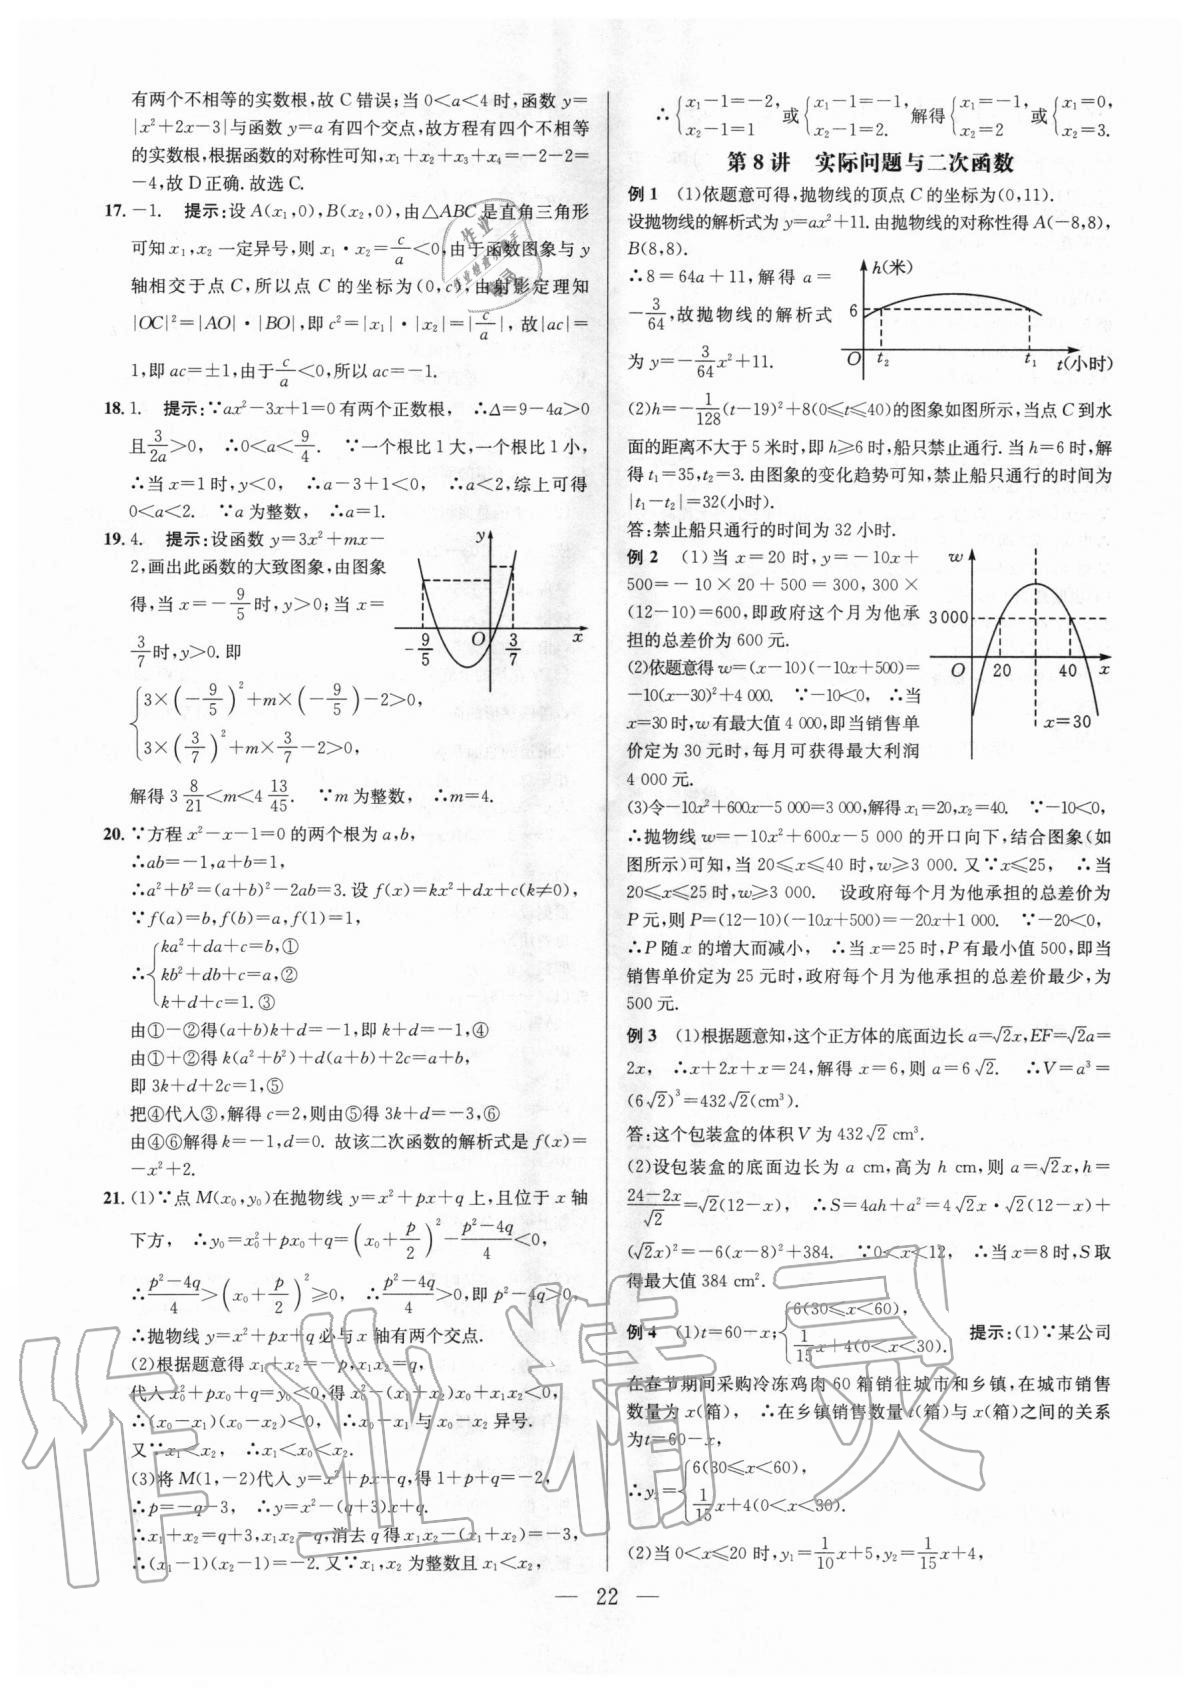 有两个不相等的实数根,故 C 错误;当 0<a<4 时,函数 y=
|x²+2x-3|与函数 y=a 有四个交点,故方程有四个不相等
的实数根,根据函数的对称性可知,x₁+x₂+x₃+x₄=-2-2=
-4,故 D 正确.故选 C.
17. -1. 提示:设 A(x₁,0),B(x₂,0),由△ABC 是直角三角形
可知 x₁,x₂ 一定异号,则 x₁·x₂=c/a<0,由于函数图象与 y
轴相交于点 C,所以点 C 的坐标为(0,c),由射影定理知
|OC|²=|AO|·|BO|,即 c²=|x₁|·|x₂|=|c/a|,故|ac|=
1,即 ac=±1,由于c/a<0,所以 ac=-1.
18. 1. 提示:∵ax²-3x+1=0 有两个正数根, ∴Δ=9-4a>0
且3/2a>0, ∴0<a<9/4. ∵一个根比 1 大,一个根比 1 小,
∴当 x=1 时,y<0, ∴a-3+1<0, ∴a<2,综上可得
0<a<2. ∵a 为整数, ∴a=1.
19. 4. 提示:设函数 y=3x²+mx-
2,画出此函数的大致图象,由图象
得,当 x=-9/5时,y>0;当 x=
3/7时,y>0.即
{3×(-9/5)²+m×(-9/5)-2>0,
3×(3/7)²+m×3/7-2>0,
y
-9/5 O 3/7 x
解得 3 8/21<m<4 13/45. ∵m 为整数, ∴m=4.
20. ∵方程 x²-x-1=0 的两个根为 a,b,
∴ab=-1,a+b=1,
∴a²+b²=(a+b)²-2ab=3.设 f(x)=kx²+dx+c(k≠0),
∵f(a)=b,f(b)=a,f(1)=1,
∴{ka²+da+c=b,①
kb²+db+c=a,②
k+d+c=1.③
由①-②得(a+b)k+d=-1,即 k+d=-1,④
由①+②得 k(a²+b²)+d(a+b)+2c=a+b,
即 3k+d+2c=1,⑤
把④代入③,解得 c=2,则由⑤得 3k+d=-3,⑥
由④⑥解得 k=-1,d=0. 故该二次函数的解析式是 f(x)=
-x²+2.
21. (1)∵点 M(x₀,y₀)在抛物线 y=x²+px+q 上,且位于 x 轴
下方, ∴y₀=x₀²+px₀+q=(x₀+p/2)²-(p²-4q)/4<0,
∴(p²-4q)/4>(x₀+p/2)²≥0, ∴(p²-4q)/4>0,即 p²-4q>0,
∴抛物线 y=x²+px+q 必与 x 轴有两个交点.
(2)根据题意得 x₁+x₂=-p,x₁x₂=q,
代入 x₀²+px₀+q=y₀<0,得 x₀²-(x₁+x₂)x₀+x₁x₂<0,
∴(x₀-x₁)(x₀-x₂)<0, ∴x₀-x₁ 与 x₀-x₂ 异号.
又∵x₁<x₂, ∴x₁<x₀<x₂.
(3)将 M(1,-2)代入 y=x²+px+q,得 1+p+q=-2,
∴p=-q-3, ∴y=x²-(q+3)x+q,
∴x₁+x₂=q+3,x₁x₂=q,消去 q 得 x₁x₂-(x₁+x₂)=-3,
∴(x₁-1)(x₂-1)=-2.又∵x₁,x₂ 为整数且 x₁<x₂,
∴{x₁-1=-2, x₂-1=1 或{x₁-1=-1, x₂-1=2. 解得{x₁=-1, x₂=2 或{x₁=0, x₂=3.
第 8 讲 实际问题与二次函数
例 1 (1)依题意可得,抛物线的顶点 C 的坐标为(0,11).
设抛物线的解析式为 y=ax²+11.由抛物线的对称性得 A(-8,8),
B(8,8).
∴8=64a+11,解得 a=
-3/64,故抛物线的解析式
为 y=-3/64x²+11.
h(米)
6
O t₂ t₁ t(小时)
(2)h=-1/128(t-19)²+8(0≤t≤40)的图象如图所示,当点 C 到水
面的距离不大于 5 米时,即 h≥6 时,船只禁止通行.当 h=6 时,解
得 t₁=35,t₂=3.由图象的变化趋势可知,禁止船只通行的时间为
|t₁-t₂|=32(小时).
答:禁止船只通行的时间为 32 小时.
例 2 (1)当 x=20 时,y=-10x+
500=-10×20+500=300,300×
(12-10)=600,即政府这个月为他承
担的总差价为 600 元.
(2)依题意得 w=(x-10)(-10x+500)=
-10(x-30)²+4 000. ∵-10<0, ∴当
x=30 时,w 有最大值 4 000,即当销售单
价定为 30 元时,每月可获得最大利润
4 000 元.
w
3 000
O 20 40 x
x=30
(3)令-10x²+600x-5 000=3 000,解得 x₁=20,x₂=40. ∵-10<0,
∴抛物线 w=-10x²+600x-5 000 的开口向下,结合图象(如
图所示)可知,当 20≤x≤40 时,w≥3 000.又∵x≤25, ∴当
20≤x≤25 时,w≥3 000. 设政府每个月为他承担的总差价为
P 元,则 P=(12-10)(-10x+500)=-20x+1 000. ∵-20<0,
∴P 随 x 的增大而减小, ∴当 x=25 时,P 有最小值 500,即当
销售单价定为 25 元时,政府每个月为他承担的总差价最少,为
500 元.
例 3 (1)根据题意知,这个正方体的底面边长 a=√2x,EF=√2a=
2x, ∴x+2x+x=24,解得 x=6,则 a=6√2. ∴V=a³=
(6√2)³=432√2(cm³).
答:这个包装盒的体积 V 为 432√2 cm³.
(2)设包装盒的底面边长为 a cm,高为 h cm,则 a=√2x,h=
(24-2x)/√2=√2(12-x), ∴S=4ah+a²=4√2x·√2(12-x)+
(√2x)²=-6(x-8)²+384. ∵0<x<12, ∴当 x=8 时,S 取
得最大值 384 cm².
例 4 (1)t=60-x;{6(30≤x<60), 1/15x+4(0<x<30). 提示:(1)∵某公司
在春节期间采购冷冻鸡肉 60 箱销往城市和乡镇,在城市销售
数量为 x(箱), ∴在乡镇销售数量 t(箱)与 x(箱)之间的关系
为 t=60-x,
∴y₂={6(30≤x<60), 1/15x+4(0<x<30).
(2)当 0<x≤20 时,y₁=1/10x+5,y₂=1/15x+4,
— 22 —
作业精灵